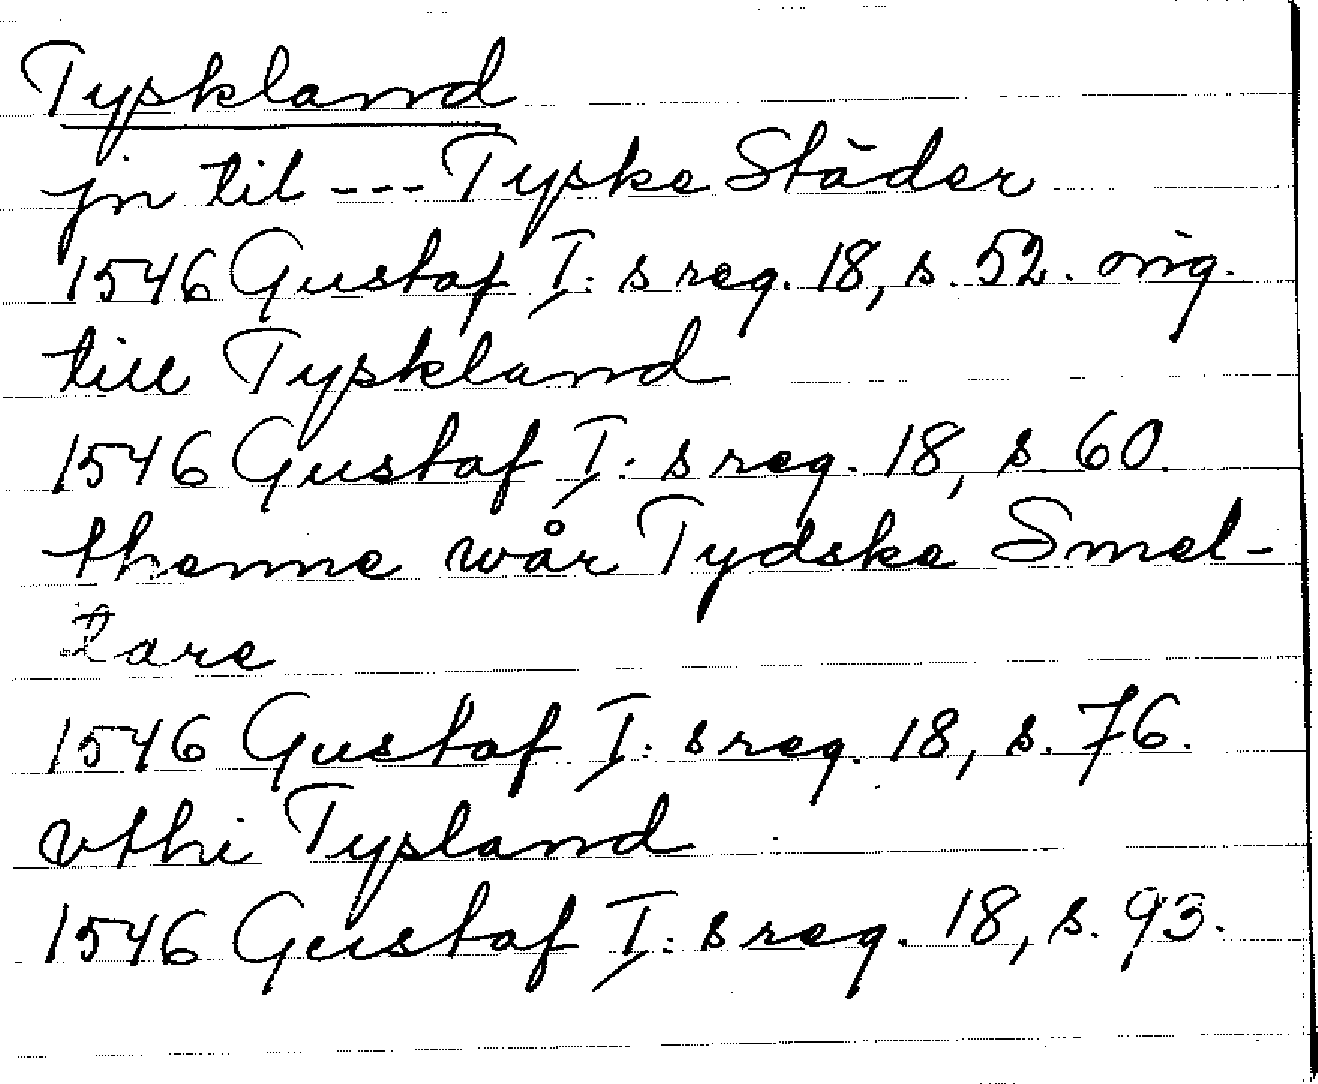 Tyskland
jn til --- Tyske Städer
1546 Gustaf I: s reg. 18, s. 52. orig.
till Tyskland
1546 Gustaf I: s reg. 18, s. 60.
thenne wår Tydske Smel-
tare
1546 Gustaf I: s reg. 18, s. 76.
vthi Tysland
1546 Gustaf I: s reg. 18, s. 93.